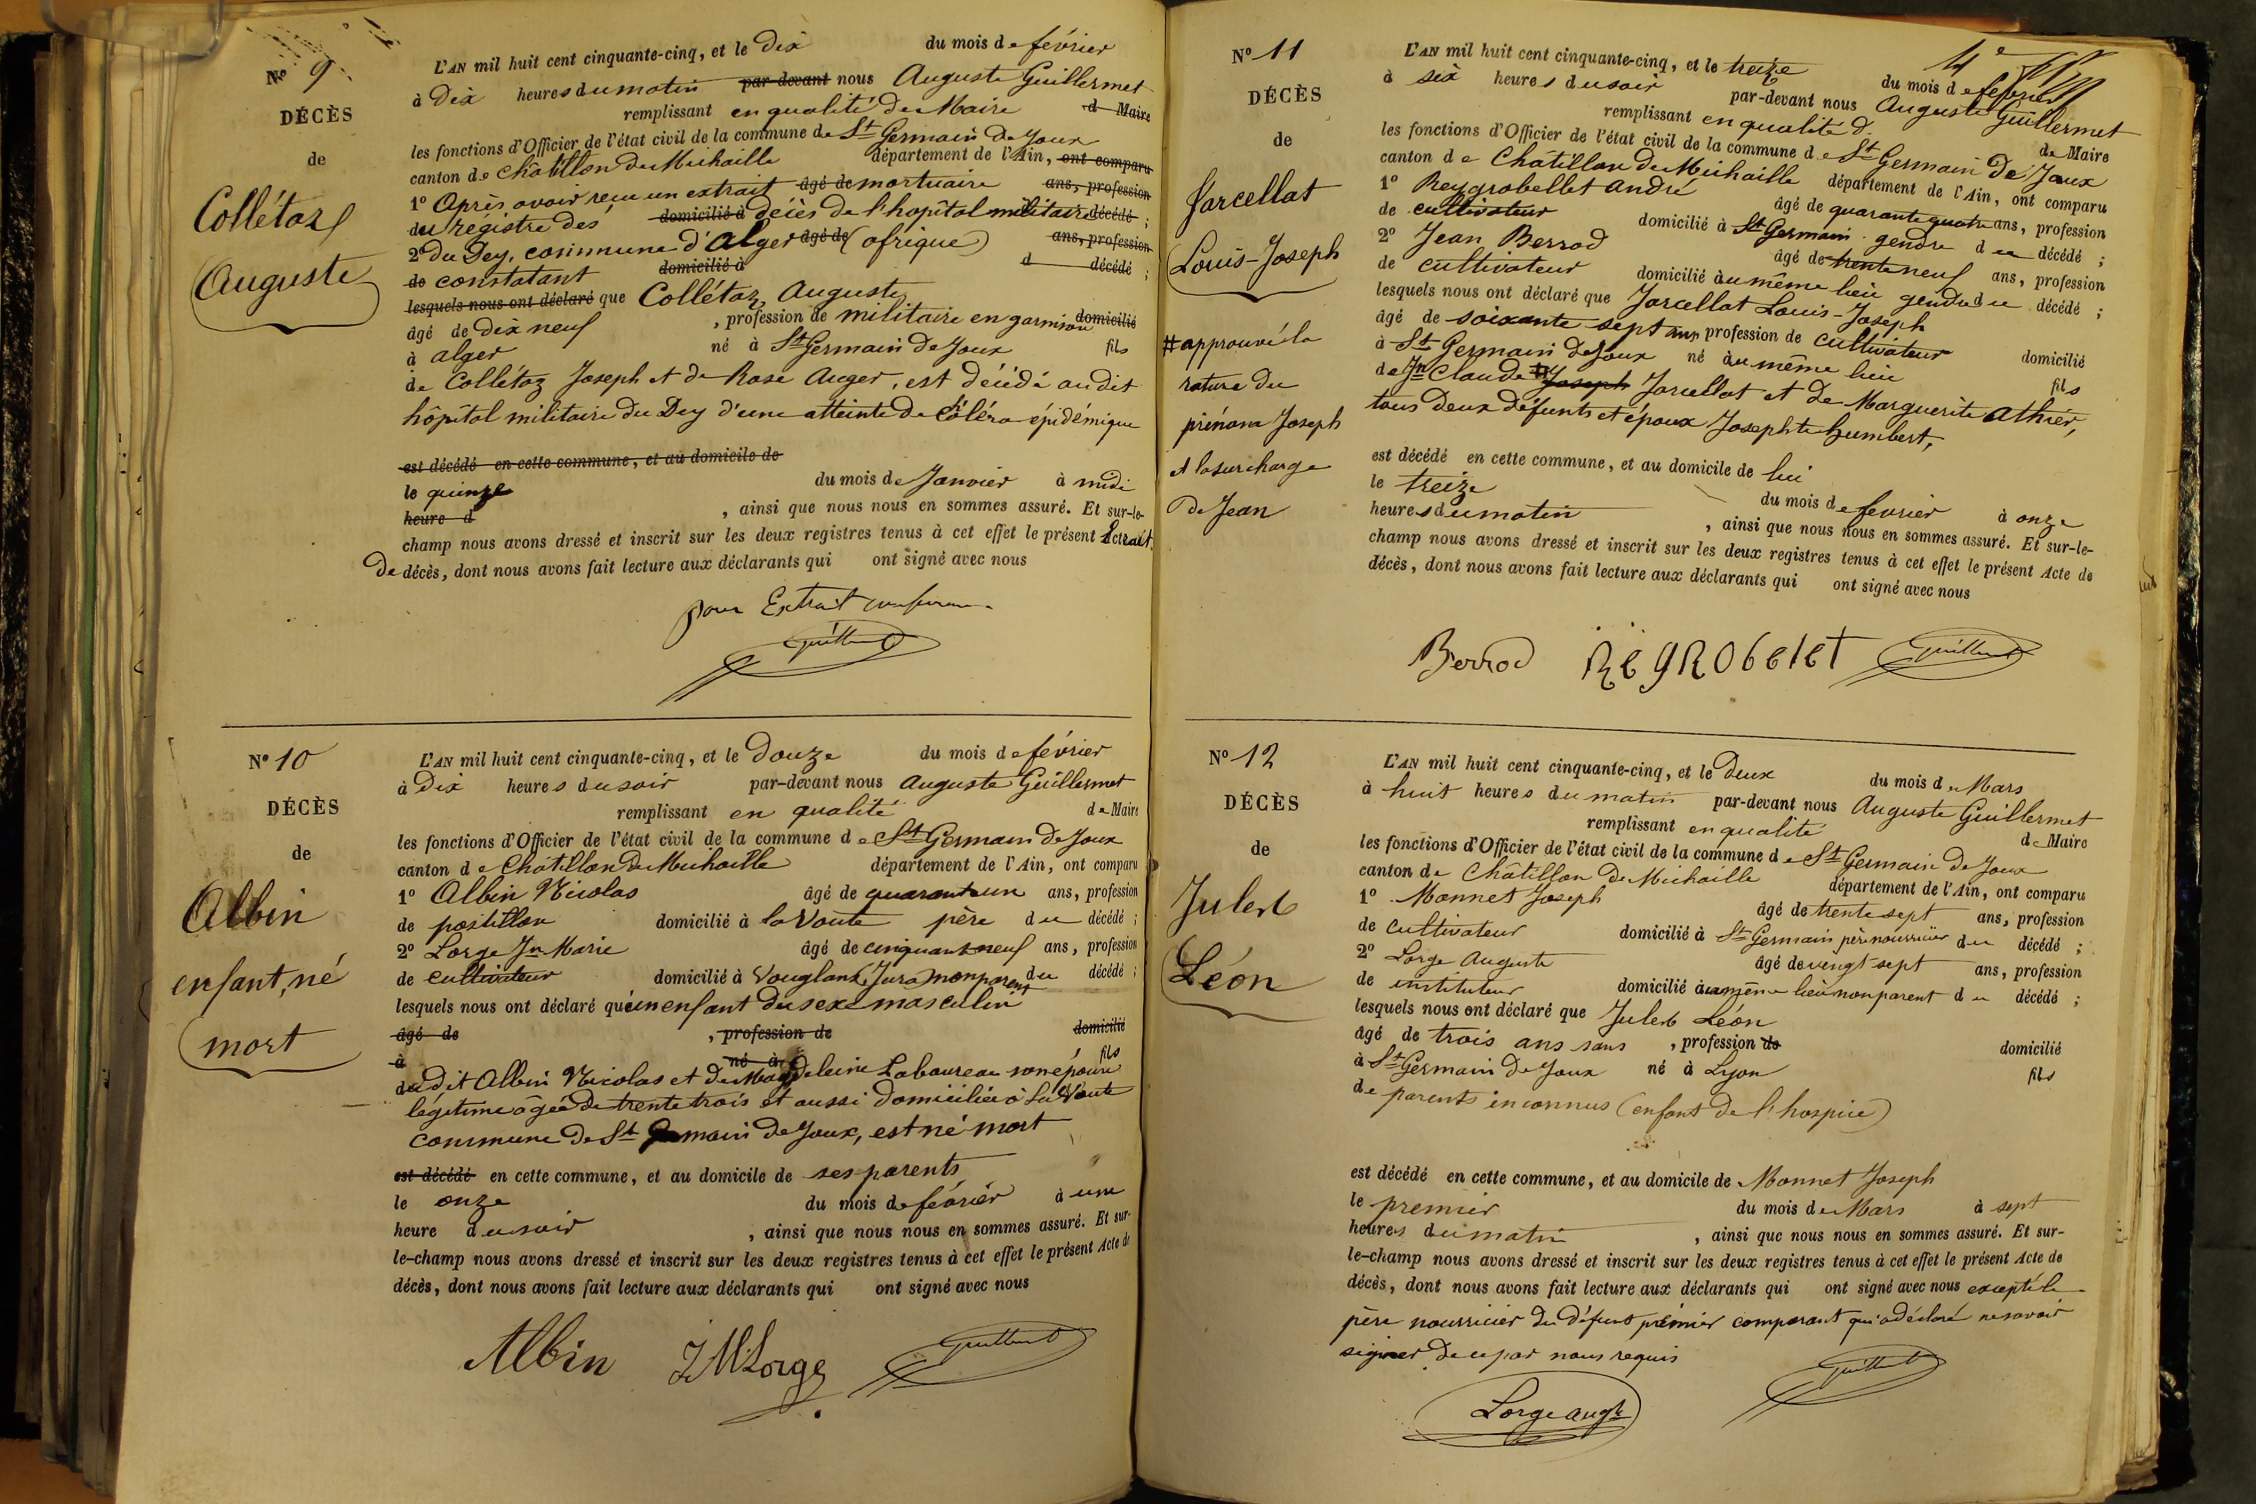 N° 9
DÉCÈS
de
Collétaz
Auguste
L'AN mil huit cent cinquante-cinq, et le Dix du mois de février
à Dix heures du matin par-devant nous Auguste Guillermet
remplissant en qualité de Maire d Maire
les fonctions d'Officier de l'état civil de la commune de St Germain de Joux
canton de Châtillon de Michaille département de l'Ain, ont comparu
1° Après avoir reçu un extrait âgé de mortuaire ans, profession
du régistre des domicilié à décès de l'hopital militaire décédé ;
2° du Dey, commune d'Alger âgé de (afrique) ans, profession
de constatant domicilié à d décédé ;
lesquels nous ont déclaré que Collétaz Auguste
âgé de Dix neuf , profession de militaire en garnison domicilié
à alger né à St Germain de Joux fils
de Collétaz Joseph et de Rose Auger, est décédé audit
hôpital militaire du Dey d'une atteinte de Coléra épidémique
est décédé en cette commune, et au domicile de
le quinze du mois de Janvier à midi
heure d , ainsi que nous nous en sommes assuré. Et sur-le-
champ nous avons dressé et inscrit sur les deux registres tenus à cet effet le présent Extrait
De décès, dont nous avons fait lecture aux déclarants qui ont signé avec nous
pour Extrait conforme
Guillermet
N° 10
DÉCÈS
de
Albin
enfant, né
mort
L'AN mil huit cent cinquante-cinq, et le Douze du mois de février
à Dix heures du soir par-devant nous Auguste Guillermet
remplissant en qualité de Maire
les fonctions d'Officier de l'état civil de la commune de St Germain de Joux
canton de Châtillon de Michaille département de l'Ain, ont comparu
1° Albin Nicolas âgé de quarante un ans, profession
de postillon domicilié à la Voute père du décédé ;
2° Lorge Jn Marie âgé de cinquante neuf ans, profession
de cultivateur domicilié à Vouglans (Jura) non parent du décédé ;
lesquels nous ont déclaré qu'un enfant du sexe masculin
âgé de , profession de domicilié
à né à fils
du dit Albin Nicolas et de Magdeleine Laboureau son épouse
légitime âgée de trente trois et aussi domiciliée à La Voute
commune de St Germain de Joux, est né mort
est décédé en cette commune, et au domicile de ses parents
le onze du mois de février à une
heure du soir , ainsi que nous nous en sommes assuré. Et sur-
le-champ nous avons dressé et inscrit sur les deux registres tenus à cet effet le présent Acte de
décès, dont nous avons fait lecture aux déclarants qui ont signé avec nous
Albin J M Lorge Guillermet
N° 11
DÉCÈS
de
Jarcellat
Louis-Joseph
# approuvé la
rature du
prénom Joseph
et la surcharge
de Jean
L'AN mil huit cent cinquante-cinq, et le treize du mois de février
à six heures du soir par-devant nous Auguste Guillermet
remplissant en qualité d. de Maire
les fonctions d'Officier de l'état civil de la commune de St Germain de Joux
canton de Châtillon de Michaille département de l'Ain, ont comparu
1° Reygrobellet André âgé de quarante quatre ans, profession
de cultivateur domicilié à St Germain gendre du décédé ;
2° Jean Berrod âgé de trente neuf ans, profession
de cultivateur domicilié au même lieu gendre du décédé ;
lesquels nous ont déclaré que Jarcellat Louis-Joseph
âgé de soixante sept ans, profession de cultivateur domicilié
à St Germain de Joux né au même lieu fils
de Jn Claude # Joseph Jarcellat et de Marguerite Athier,
tous deux défunts et époux Josephte humbert,
est décédé en cette commune, et au domicile de lui
le treize du mois de fevrier à onze
heures du matin , ainsi que nous nous en sommes assuré. Et sur-le-
champ nous avons dressé et inscrit sur les deux registres tenus à cet effet le présent Acte de
décès, dont nous avons fait lecture aux déclarants qui ont signé avec nous
Berrod REGROBELET Guillermet
N° 12
DÉCÈS
de
Julert
Léon
L'AN mil huit cent cinquante-cinq, et le Deux du mois de Mars
à huit heures du matin par-devant nous Auguste Guillermet
remplissant en qualité de Maire
les fonctions d'Officier de l'état civil de la commune de St Germain de Joux
canton de Châtillon de Michaille département de l'Ain, ont comparu
1° Monnet Joseph âgé de trente sept ans, profession
de cultivateur domicilié à St Germain père nourricier du décédé ;
2° Lorge Auguste âgé de vingt sept ans, profession
de instituteur domicilié au même lieu non parent du décédé ;
lesquels nous ont déclaré que Julert Léon
âgé de trois ans sans , profession de domicilié
à St Germain de Joux né à Lyon fils
de parents inconnus (enfant de l'hospice)
est décédé en cette commune, et au domicile de Monnet Joseph
le premier du mois de Mars à sept
heures du matin , ainsi que nous nous en sommes assuré. Et sur-
le-champ nous avons dressé et inscrit sur les deux registres tenus à cet effet le présent Acte de
décès, dont nous avons fait lecture aux déclarants qui ont signé avec nous excepté le
père nourricier du défunt prémier comparant qui a déclaré ne savoir
signer de ce par nous requis
Lorge Augte Guillermet